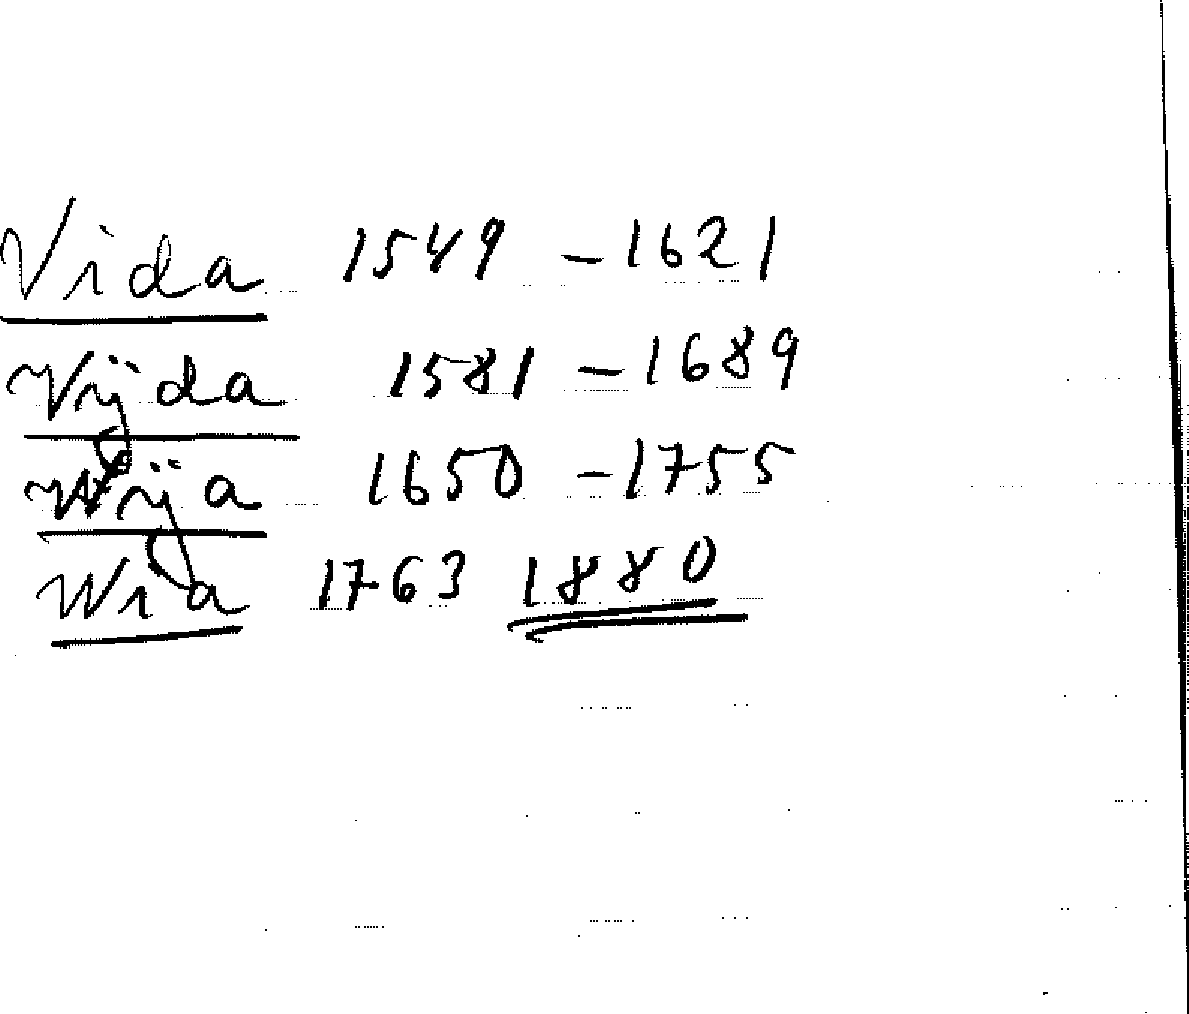 Vida 1549 - 1621
Vijda 1581 - 1689
Wija 1650 - 1755
Wia 1763 1880